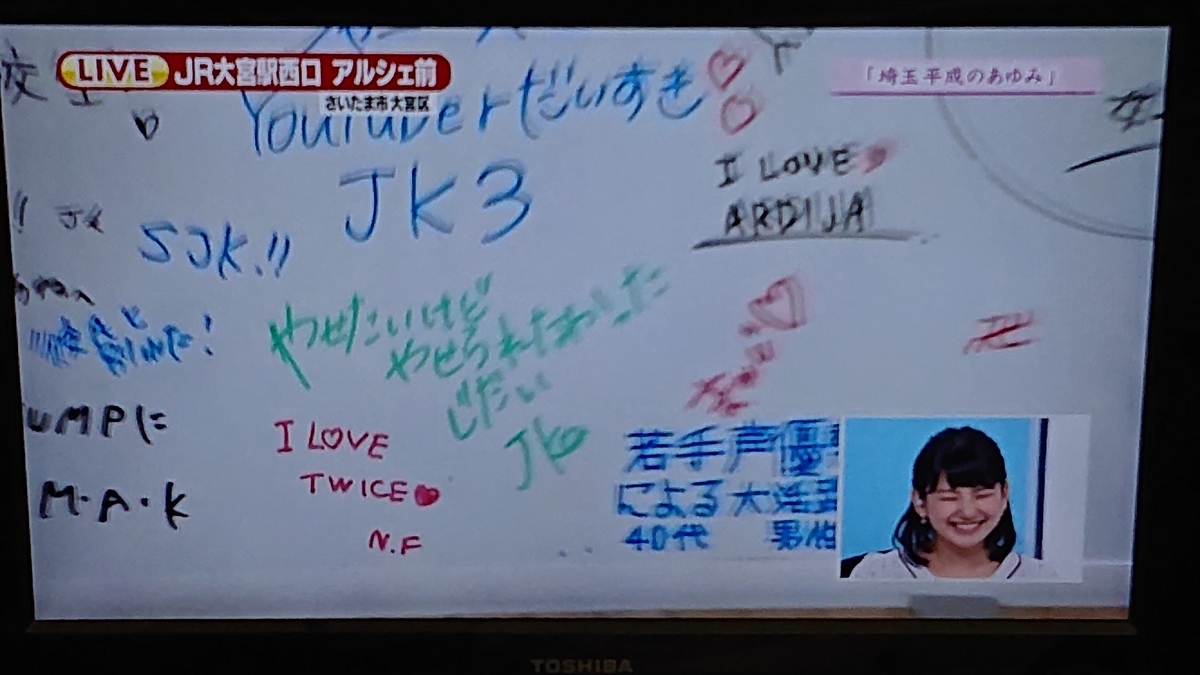 LIVE JR大宮駅西口 アルシェ前
さいたま市大宮区
「埼玉 平成のあゆみ」
YouTuberだいすき♡♡
JK3
I LOVE♥
ARDIJA
JK
SJK.!!
やせたいけど
やせられたまいした
じだい
JK
UMPに
M・A・K
I LOVE
TWICE♥
N.F
卍
若手声優
による大
40代 男性
TOSHIBA